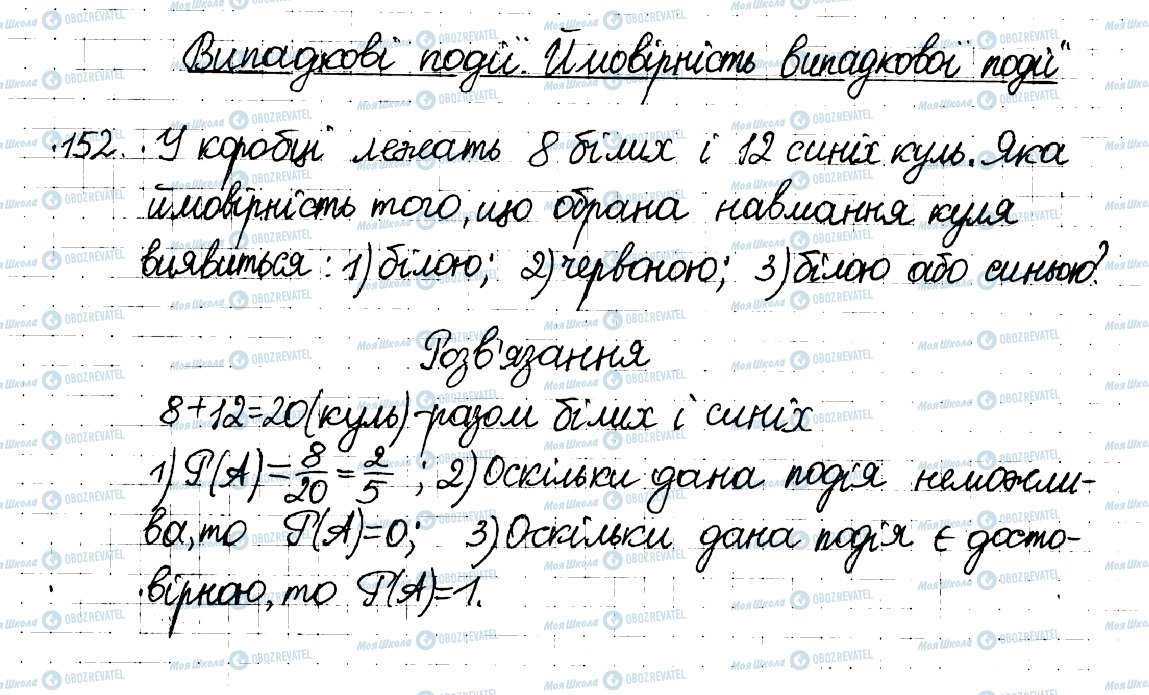 Випадкові події. Ймовірність випадкової події"
152. У коробці лежать 8 білих і 12 синіх куль. Яка
ймовірність того, що обрана навмання куля
виявиться: 1) білою; 2) червоною; 3) білою або синьою?
Розв'язання
8+12=20(куль)-разом білих і синіх
1) P(A)=8/20=2/5; 2) Оскільки дана подія неможли-
ва, то P(A)=0; 3) Оскільки дана подія є досто-
вірною, то P(A)=1.
МояШкола OBOZREVATEL